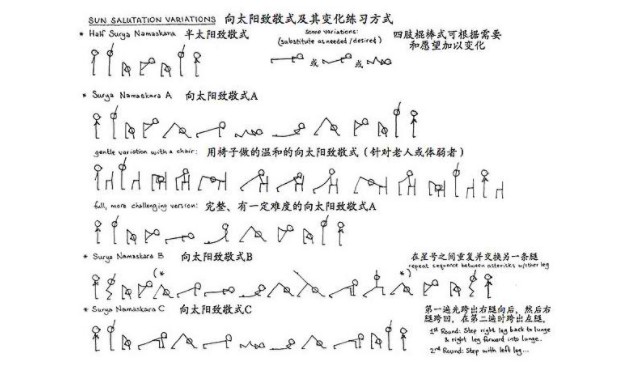 SUN SALUTATION VARIATIONS 向太阳致敬式及其变化练习方式
* Half Surya Namaskara 半太阳致敬式
some variations:
(substitute as needed/desired)
四肢棍棒式可根据需要
和愿望加以变化
或 或
* Surya Namaskara A 向太阳致敬式A
gentle variation with a chair: 用椅子做的温和的向太阳致敬式(针对老人或体弱者)
full, more challenging version: 完整、有一定难度的向太阳致敬式A
* Surya Namaskara B 向太阳致敬式B
在星号之间重复并交换另一条腿
repeat sequence between asterisks w/other leg
(* *)
* Surya Namaskara C 向太阳致敬式C
第一遍先跨出右腿向后，然后右
腿跨回，在第二遍时跨出左腿。
1st Round: Step right leg back to lunge
& right leg forward into lunge.
2nd Round: Step with left leg...